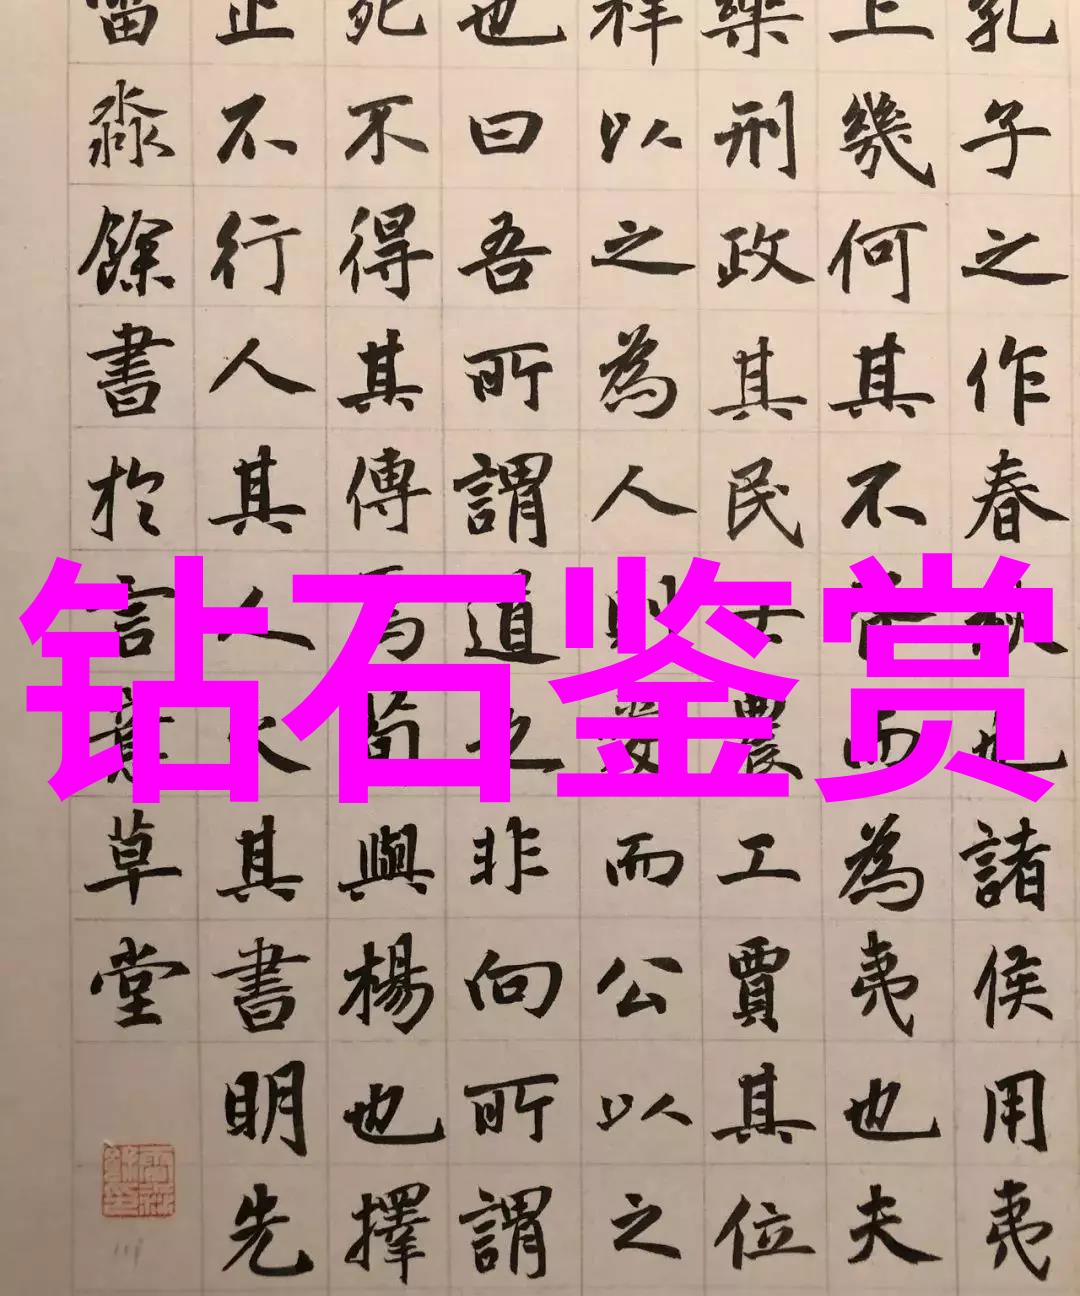 孔子之作春秋也諸侯用夷
上幾何其不胥而為夷也夫
樂刑政其民士農工賈其位
祥以之為人則愛而公以之
也曰吾所謂道之非向所謂
死不得其傳焉荀與楊也擇
止不行人其人火其書明先
淼餘書於言意草堂
钻石鉴赏